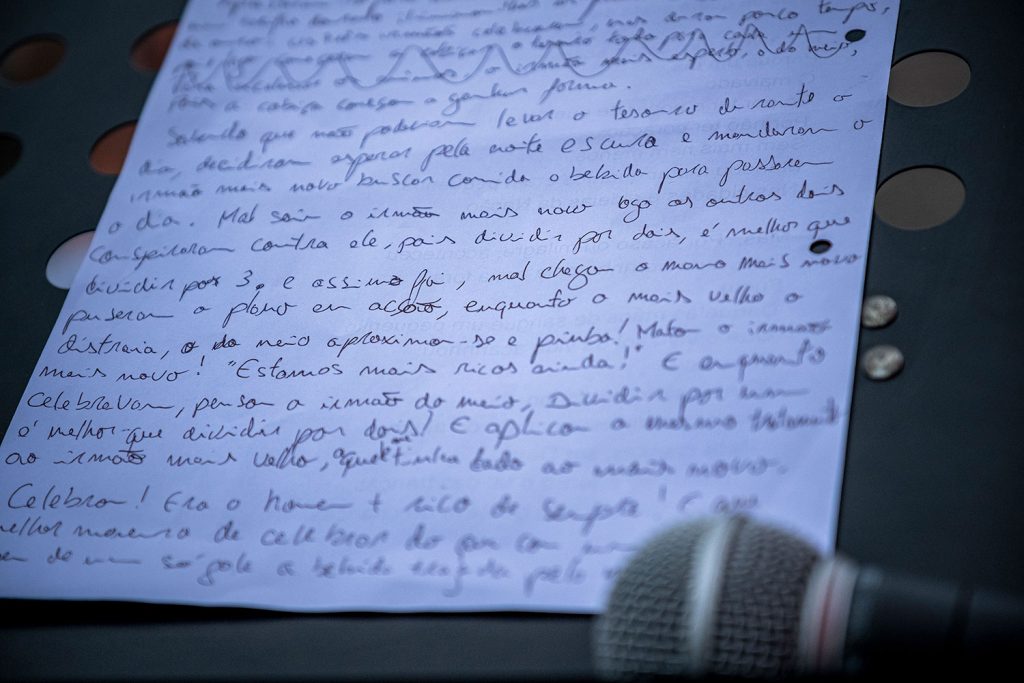 mas em pouco tempo,
o irmão mais esperto, o do meio,
a ganhar forma.
Sabendo que não poderiam levar o tesouro durante o
dia, decidiram esperar pela noite escura e mandaram o
irmão mais novo buscar comida e bebida para passarem
o dia. Mal saiu o irmão mais novo logo os outros dois
conspiraram contra ele, pois dividir por dois, é melhor que
dividir por 3. e assim foi, mal chegou o mano mais novo
puseram o plano em acção, enquanto o mais velho o
distraia, o do meio aproximou-se e pimba! Matou o irmão
mais novo! "Estamos mais ricos ainda!" E enquanto
celebravam, pensou o irmão do meio, Dividir por um
é melhor que dividir por dois! E aplicou o mesmo tratamento
ao irmão mais velho, que tinha dado ao mais novo.
Celebrou! Era o homem + rico de sempre! E que
melhor maneira de celebrar do que com um
de um só gole a bebida trazida pelo